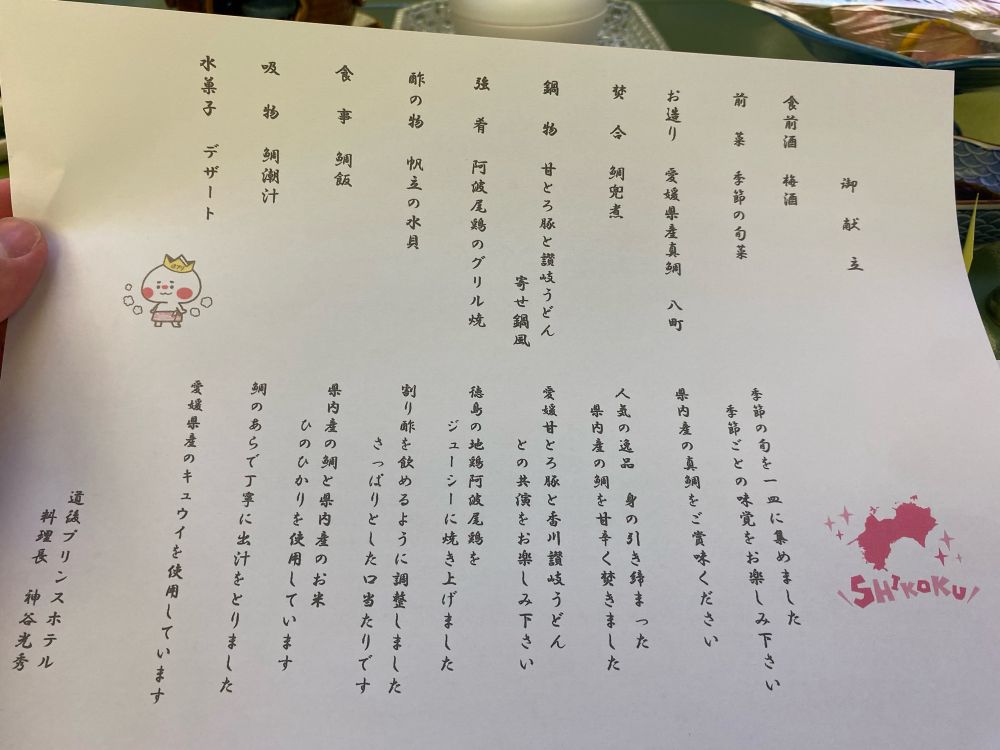 御献立
食前酒 梅酒
前菜 季節の旬菜
お造り 愛媛県産真鯛 八町
焚合 鯛兜煮
鍋物 甘とろ豚と讃岐うどん
寄せ鍋風
強肴 阿波尾鶏のグリル焼
酢の物 帆立の水貝
食事 鯛飯
吸物 鯛潮汁
水菓子 デザート
季節の旬を一皿に集めました
季節ごとの味覚をお楽しみ下さい
県内産の真鯛をご賞味ください
人気の逸品 身の引き締まった
県内産の鯛を甘辛く焚きました
愛媛甘とろ豚と香川讃岐うどん
との共演をお楽しみ下さい
徳島の地鶏阿波尾鶏を
ジューシーに焼き上げました
割り酢を飲めるように調整しました
さっぱりとした口当たりです
県内産の鯛と県内産のお米
ひのひかりを使用しています
鯛のあらで丁寧に出汁をとりました
愛媛県産のキュウイを使用しています
道後プリンスホテル
料理長 神谷光秀
SHIKOKU